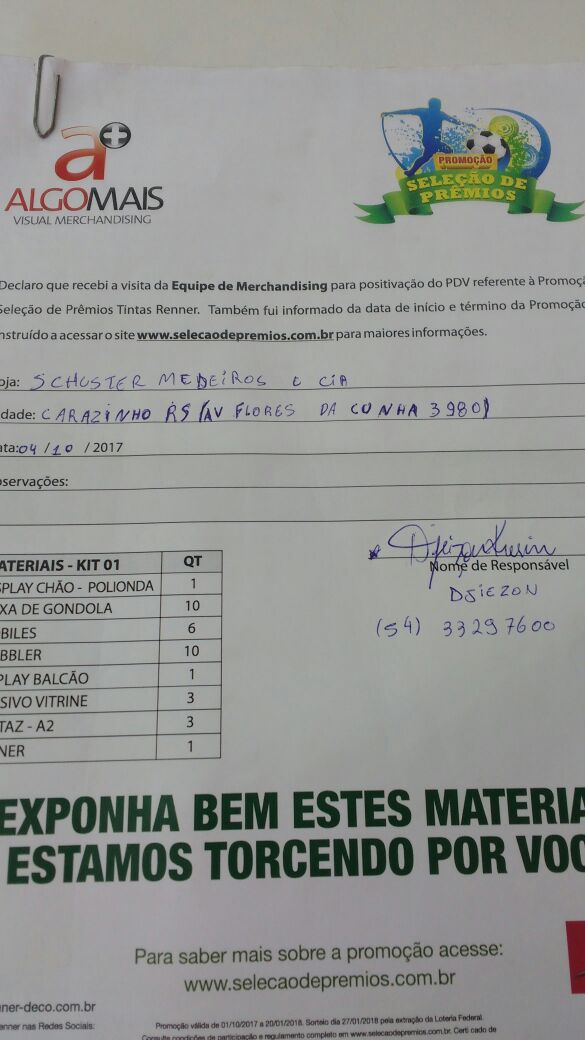 a+
ALGOMAIS
VISUAL MERCHANDISING
PROMOÇÃO
SELEÇÃO DE
PRÊMIOS
Declaro que recebi a visita da Equipe de Merchandising para positivação do PDV referente à Promoçã
Seleção de Prêmios Tintas Renner. Também fui informado da data de início e término da Promoção
nstruído a acessar o site www.selecaodepremios.com.br para maiores informações.
oja: SCHUSTER MEDEIROS E CIA
idade: CARAZINHO RS (AV FLORES DA CUNHA 3980)
ata: 04 / 10 / 2017
oservações:
ATERIAIS - KIT 01 QT
SPLAY CHÃO - POLIONDA 1
IXA DE GONDOLA 10
OBILES 6
BBLER 10
PLAY BALCÃO 1
SIVO VITRINE 3
TAZ - A2 3
NER 1
Nome de Responsável
DJIEZON
(54) 33297600
EXPONHA BEM ESTES MATERIA
ESTAMOS TORCENDO POR VOC
Para saber mais sobre a promoção acesse:
www.selecaodepremios.com.br
ner-deco.com.br
enner nas Redes Sociais:
Promoção válida de 01/10/2017 a 20/01/2018. Sorteio dia 27/01/2018 pela extração da Loteria Federal.
Consulte condições de participação e regulamento completo em www.selecaodepremios.com.br. Certi cado de